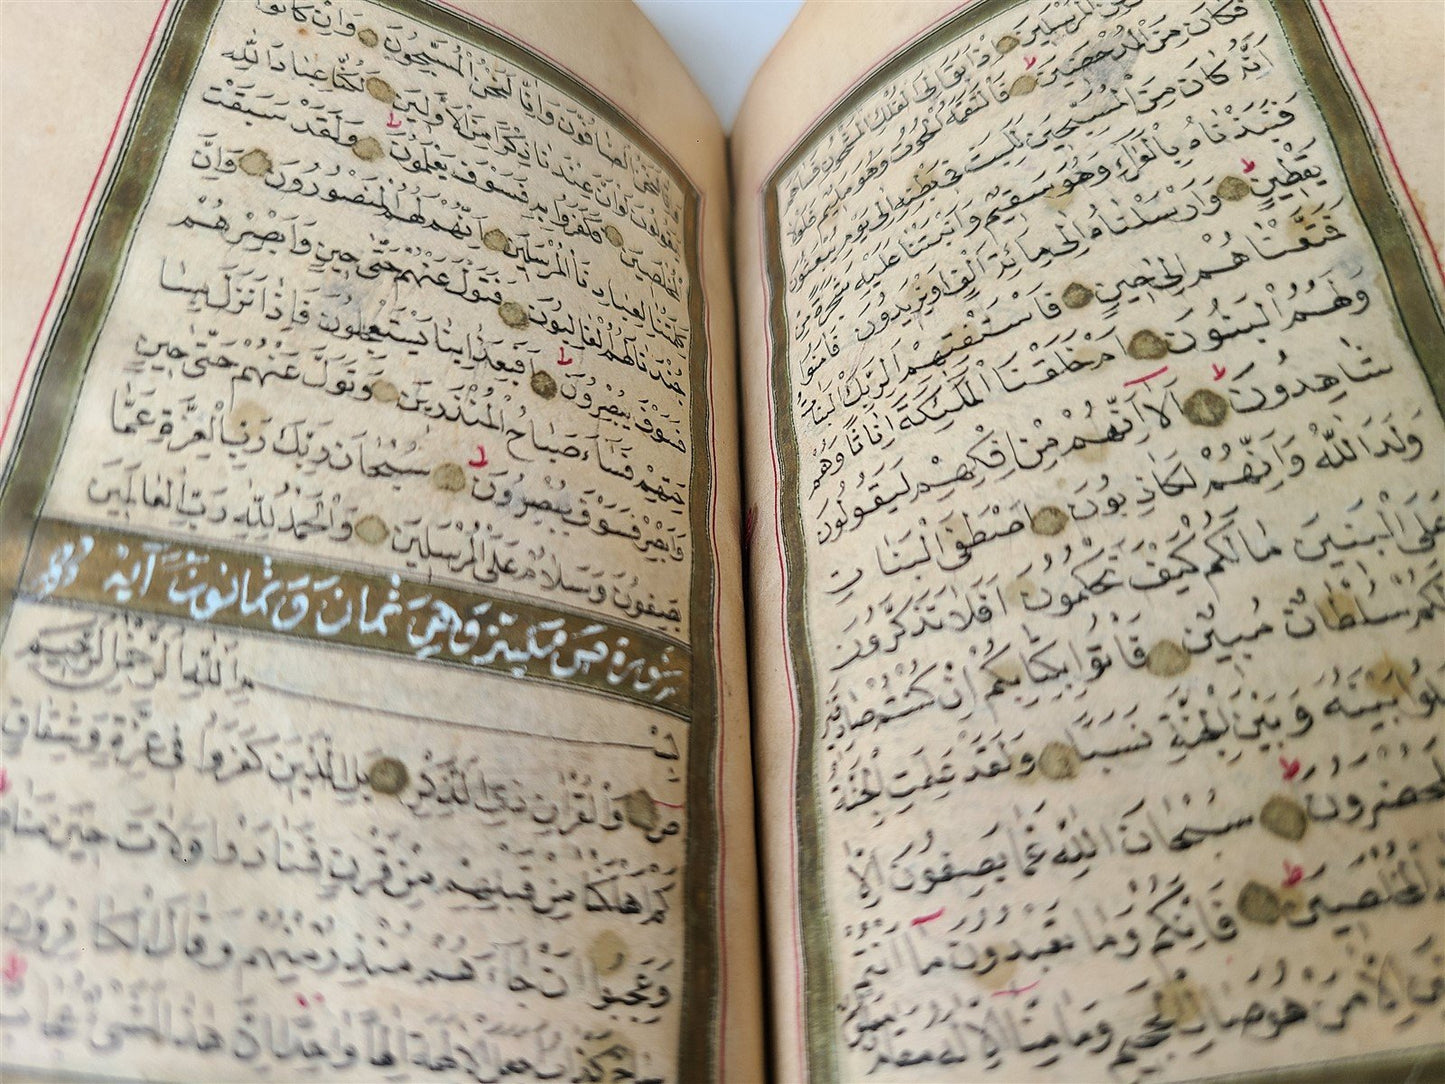 اِذْ اَبَقَ اِلَى الْفُلْكِ الْمَشْحُونِ فَسَاهَمَ
فَكَانَ مِنَ الْمُدْحَضِينَ فَالْتَقَمَهُ الْحُوتُ وَهُوَ مُلِيمٌ فَلَوْلَا
اَنَّهُ كَانَ مِنَ الْمُسَبِّحِينَ لَلَبِثَ فِي بَطْنِهِ اِلَى يَوْمِ يُبْعَثُونَ
فَنَبَذْنَاهُ بِالْعَرَاءِ وَهُوَ سَقِيمٌ وَاَنْبَتْنَا عَلَيْهِ شَجَرَةً مِنْ
يَقْطِينٍ وَاَرْسَلْنَاهُ اِلَى مِائَةِ اَلْفٍ اَوْ يَزِيدُونَ فَآمَنُوا
فَمَتَّعْنَاهُمْ اِلَى حِينٍ فَاسْتَفْتِهِمْ اَلِرَبِّكَ الْبَنَاتُ
وَلَهُمُ الْبَنُونَ اَمْ خَلَقْنَا الْمَلٰئِكَةَ اِنَاثًا وَهُمْ
شَاهِدُونَ اَلَا اِنَّهُمْ مِنْ اِفْكِهِمْ لَيَقُولُونَ
وَلَدَ اللّٰهُ وَاِنَّهُمْ لَكَاذِبُونَ اَصْطَفَى الْبَنَاتِ
عَلَى الْبَنِينَ مَالَكُمْ كَيْفَ تَحْكُمُونَ اَفَلَا تَذَكَّرُونَ
لَكُمْ سُلْطَانٌ مُبِينٌ فَأْتُوا بِكِتَابِكُمْ اِنْ كُنْتُمْ صَادِقِينَ
بَيْنَهُ وَبَيْنَ الْجِنَّةِ نَسَبًا وَلَقَدْ عَلِمَتِ الْجِنَّةُ
لَمُحْضَرُونَ سُبْحَانَ اللّٰهِ عَمَّا يَصِفُونَ اِلَّا
الْمُخْلَصِينَ فَاِنَّكُمْ وَمَا تَعْبُدُونَ مَا اَنْتُمْ
اِلَّا مَنْ هُوَ صَالِ الْجَحِيمِ وَمَا مِنَّا اِلَّا لَهُ مَقَامٌ
الصَّافُّونَ وَاِنَّا لَنَحْنُ الْمُسَبِّحُونَ وَاِنْ كَانُوا
لَيَقُولُونَ لَوْ اَنَّ عِنْدَنَا ذِكْرًا مِنَ الْاَوَّلِينَ لَكُنَّا عِبَادَ اللّٰهِ
الْمُخْلَصِينَ فَكَفَرُوا بِهِ فَسَوْفَ يَعْلَمُونَ وَلَقَدْ سَبَقَتْ
كَلِمَتُنَا لِعِبَادِنَا الْمُرْسَلِينَ اِنَّهُمْ لَهُمُ الْمَنْصُورُونَ وَاِنَّ
جُنْدَنَا لَهُمُ الْغَالِبُونَ فَتَوَلَّ عَنْهُمْ حَتَّى حِينٍ وَاَبْصِرْهُمْ
فَسَوْفَ يُبْصِرُونَ اَفَبِعَذَابِنَا يَسْتَعْجِلُونَ فَاِذَا نَزَلَ بِسَا
حَتِهِمْ فَسَاءَ صَبَاحُ الْمُنْذَرِينَ وَتَوَلَّ عَنْهُمْ حَتَّى حِينٍ
وَاَبْصِرْ فَسَوْفَ يُبْصِرُونَ سُبْحَانَ رَبِّكَ رَبِّ الْعِزَّةِ عَمَّا
يَصِفُونَ وَسَلَامٌ عَلَى الْمُرْسَلِينَ وَالْحَمْدُ لِلّٰهِ رَبِّ الْعَالَمِينَ
سُورَةُ ص مَكِّيَّةٌ وَهِيَ ثَمَانٌ وَثَمَانُونَ آيَةً
بِسْمِ اللّٰهِ الرَّحْمٰنِ الرَّحِيمِ
ص وَالْقُرْاٰنِ ذِي الذِّكْرِ بَلِ الَّذِينَ كَفَرُوا فِي عِزَّةٍ وَشِقَاقٍ
كَمْ اَهْلَكْنَا مِنْ قَبْلِهِمْ مِنْ قَرْنٍ فَنَادَوْا وَلَاتَ حِينَ مَنَاصٍ
وَعَجِبُوا اَنْ جَاءَهُمْ مُنْذِرٌ مِنْهُمْ وَقَالَ الْكَافِرُونَ
كَذَّابٌ اَجَعَلَ الْاٰلِهَةَ اِلٰهًا وَاحِدًا اِنَّ هٰذَا لَشَيْءٌ عُجَابٌ